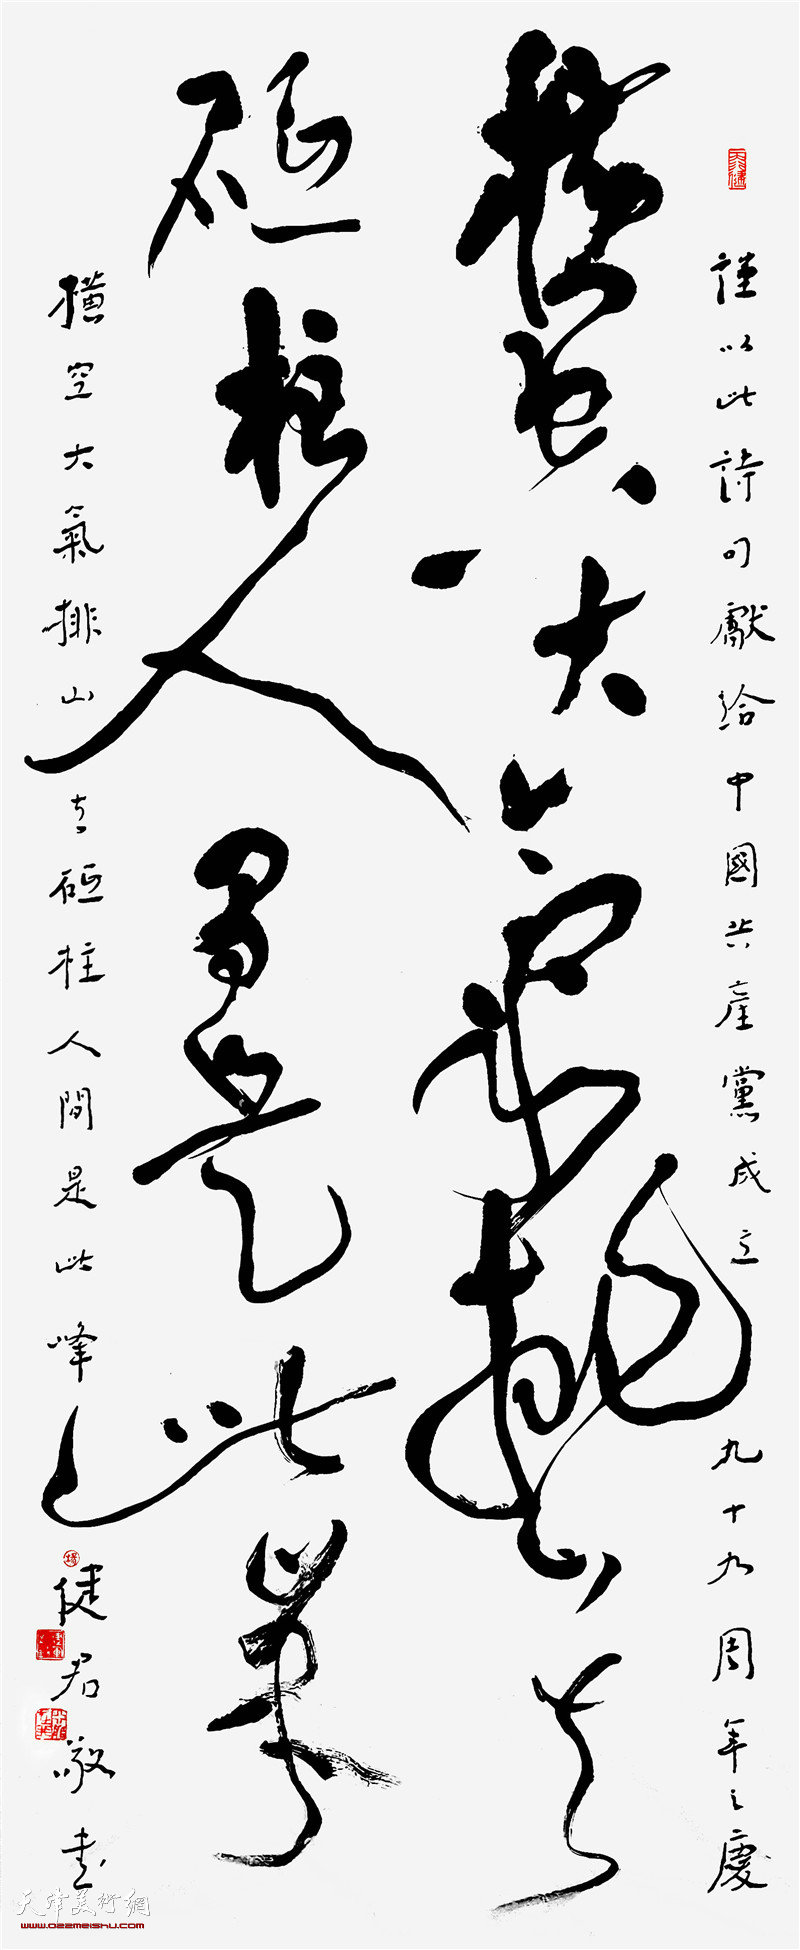 謹以此詩句獻給中國共產黨成立九十九周年之慶
橫空大氣排山去
砥柱人間是此峰
橫空大氣排山去砥柱人間是此峰
健君敬書
天津美術網
www.022meishu.com